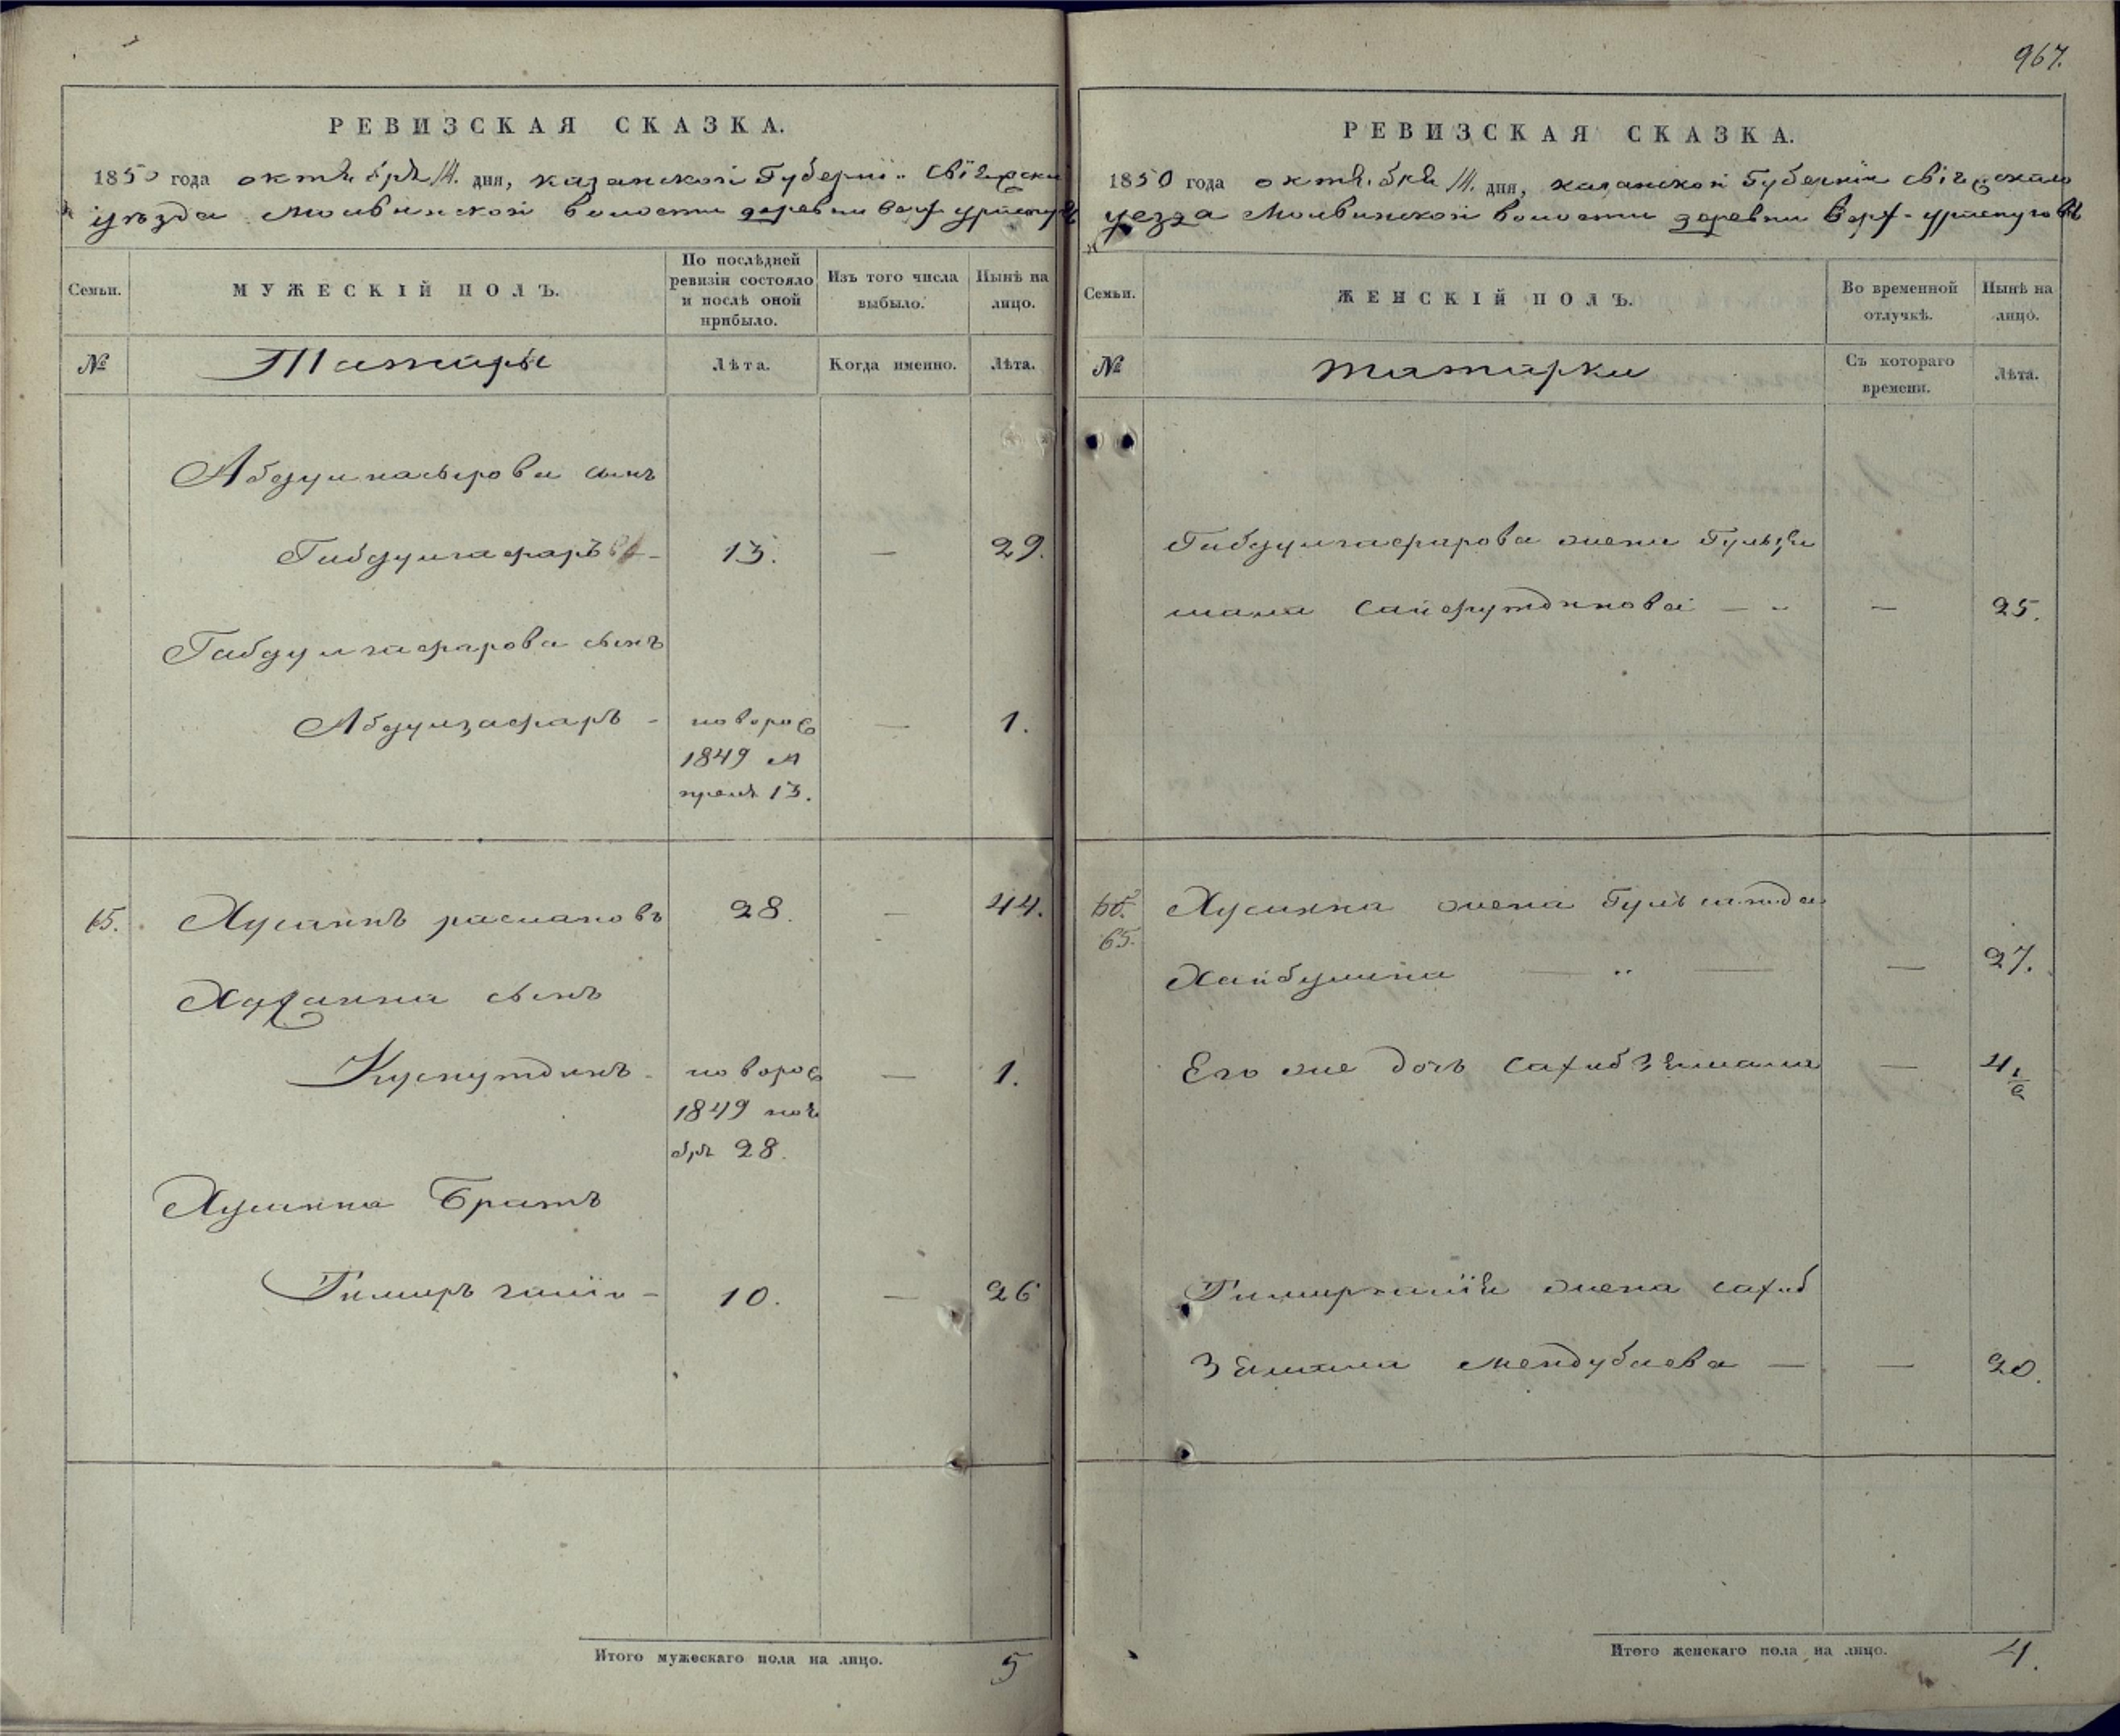 967.
РЕВИЗСКАЯ СКАЗКА.
1850 года октября 14. дня, казанской Губернiи Свiяжска
уѣзда Молвинской волости деревни Верх
Семьи.
МУЖЕСКІЙ ПОЛЪ.
По послѣдней ревизіи состояло и послѣ оной прибыло.
Изъ того числа выбыло.
Нынѣ на лицо.
№
Татары
Лѣта.
Когда именно.
Лѣта.
Абдулнасырова сынъ
Габдулгафаръ — 13. — 29.
Габдулгафарова сынъ
Абдулзафаръ - новорож — 1.
1849 А
преля 13.
65. Хусаинъ расмановъ 28. — 44.
сынъ
новорож — 1.
1849 ноя
бря 28.
Хусаина Братъ
10. — 26
Итого мужескаго пола на лицо. 5
РЕВИЗСКАЯ СКАЗКА.
1850 года октября 14. дня, казанской Губернiи Свiяжскаго
уезда Молвинской волости деревни Верх-
Семьи.
ЖЕНСКІЙ ПОЛЪ.
Во временной отлучкѣ.
Нынѣ на лицо.
№
Татарки
Съ котораго времени.
Лѣта.
Габдулгафарова жена Гульзя
мала Сайфутдинова — — 25.
65. Хусаина жена
65.
Хайбулина — — 27.
Его же дочь Сахибзямала — 4 1/2
жена сахиб
Зямала Мендубаева — — 20.
Итого женскаго пола на лицо. 4.